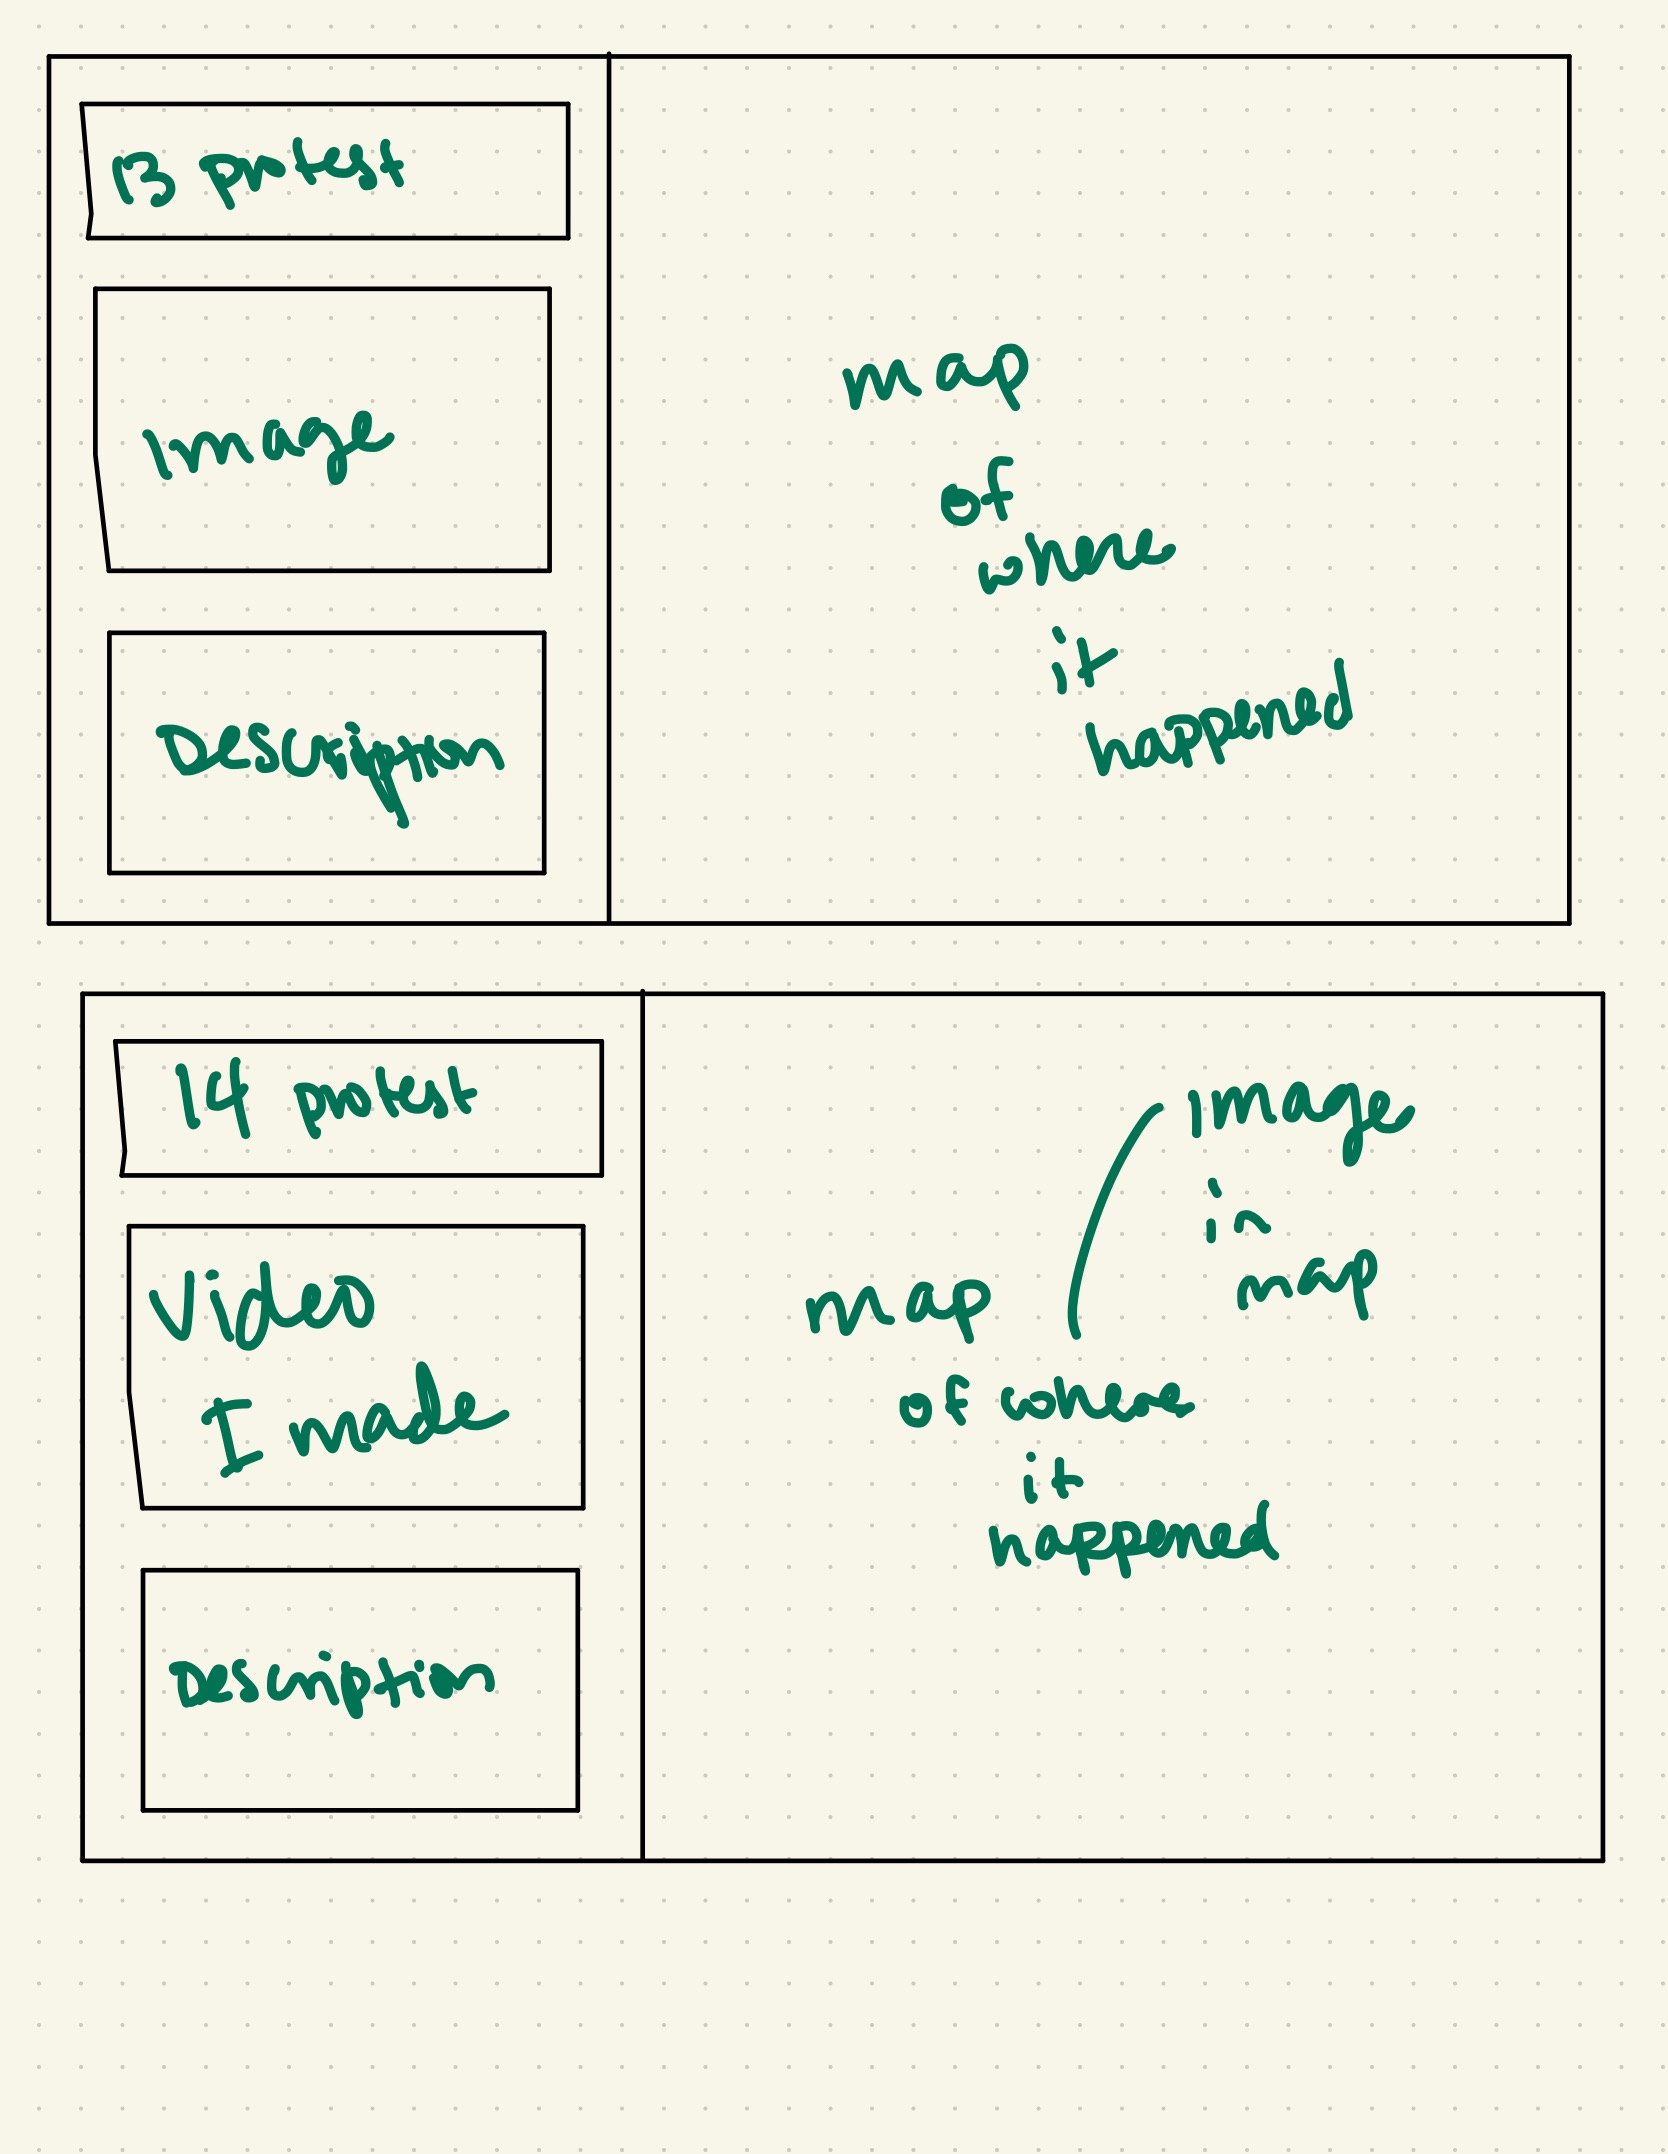 13 protest
Image
Description
map
of
where
it
happened
14 protest
Video
I made
Description
map
of where
it
happened
image
in
map